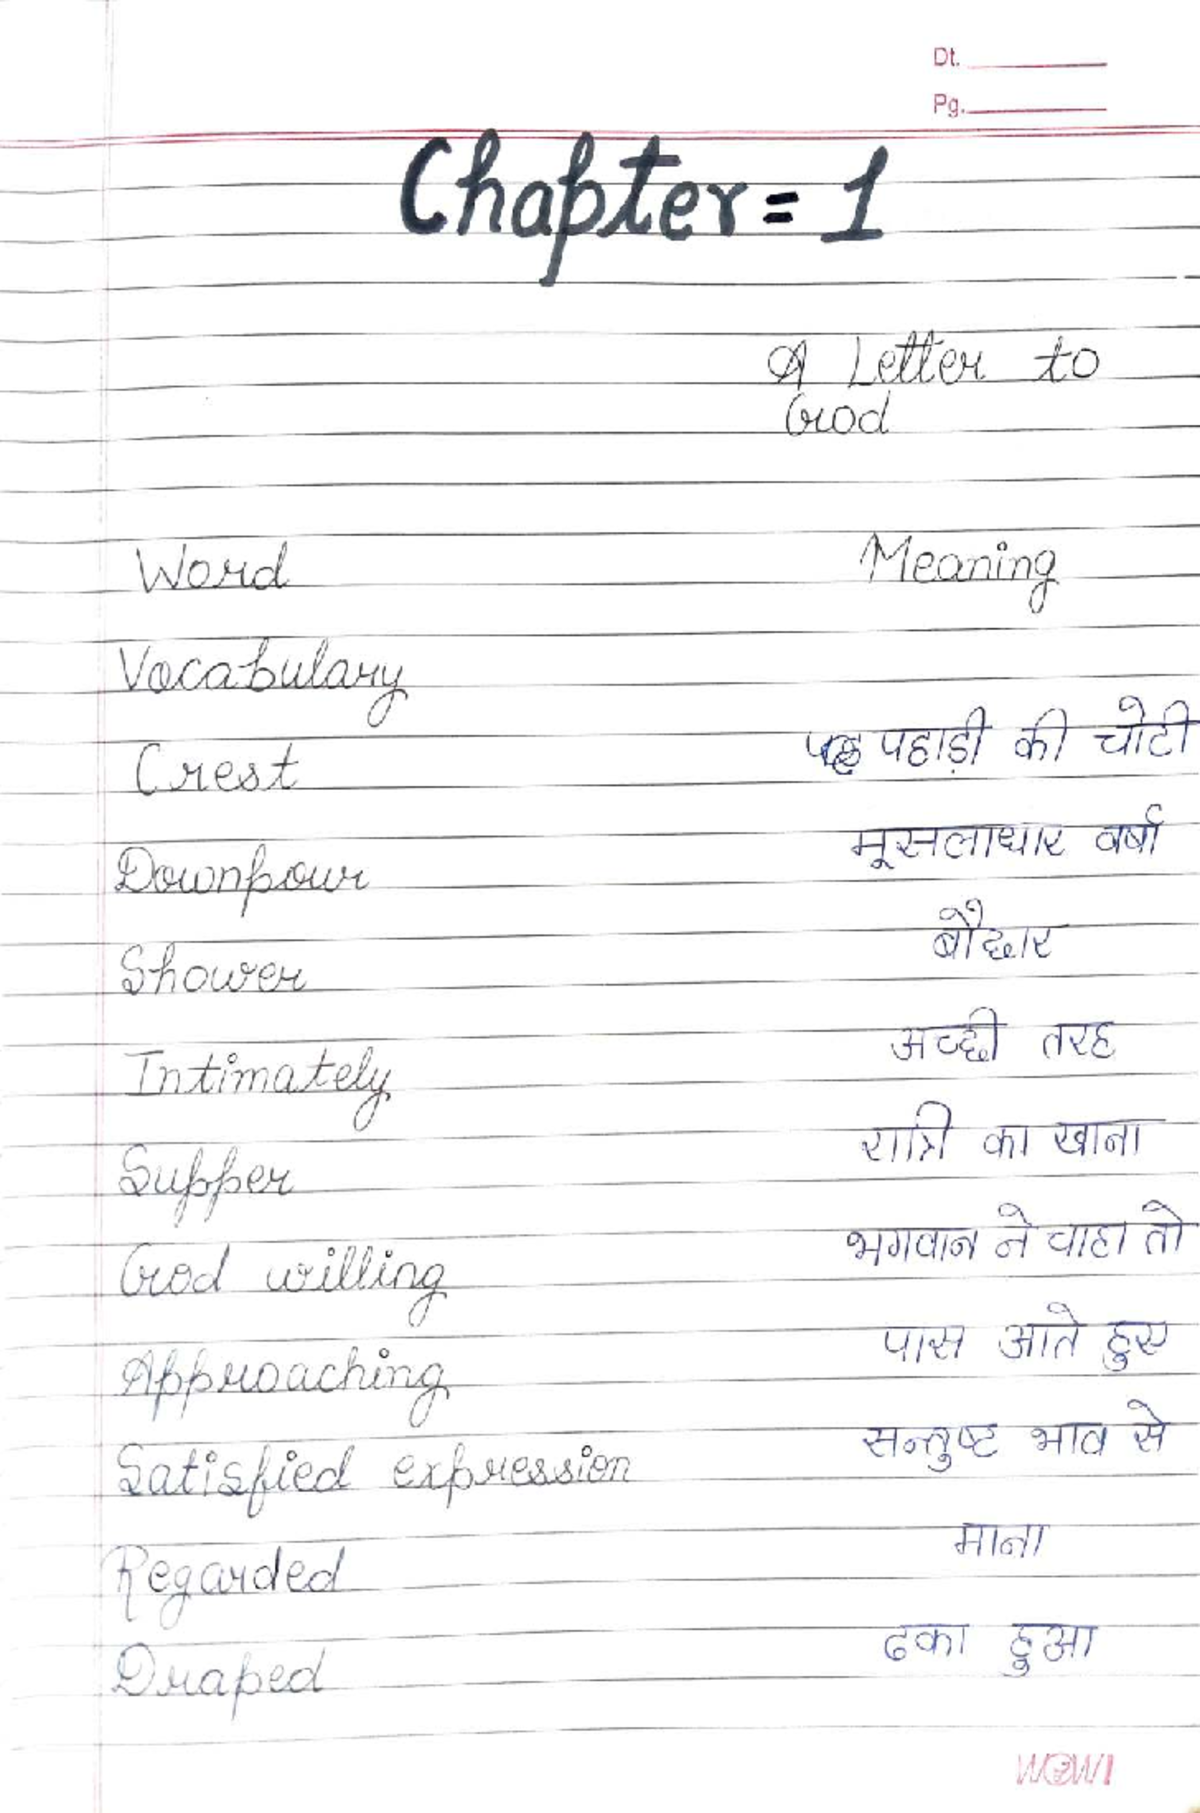 Dt.
Pg.
Chapter = 1
A Letter to
God
Word Meaning
Vocabulary
Crest पहाड़ी की चोटी
Downpour मूसलाधार वर्षा
Shower बौछार
Intimately अच्छी तरह
Supper रात्रि का खाना
God willing भगवान ने चाहा तो
Approaching पास आते हुए
Satisfied expression सन्तुष्ट भाव से
Regarded माना
Draped ढका हुआ
WOW!